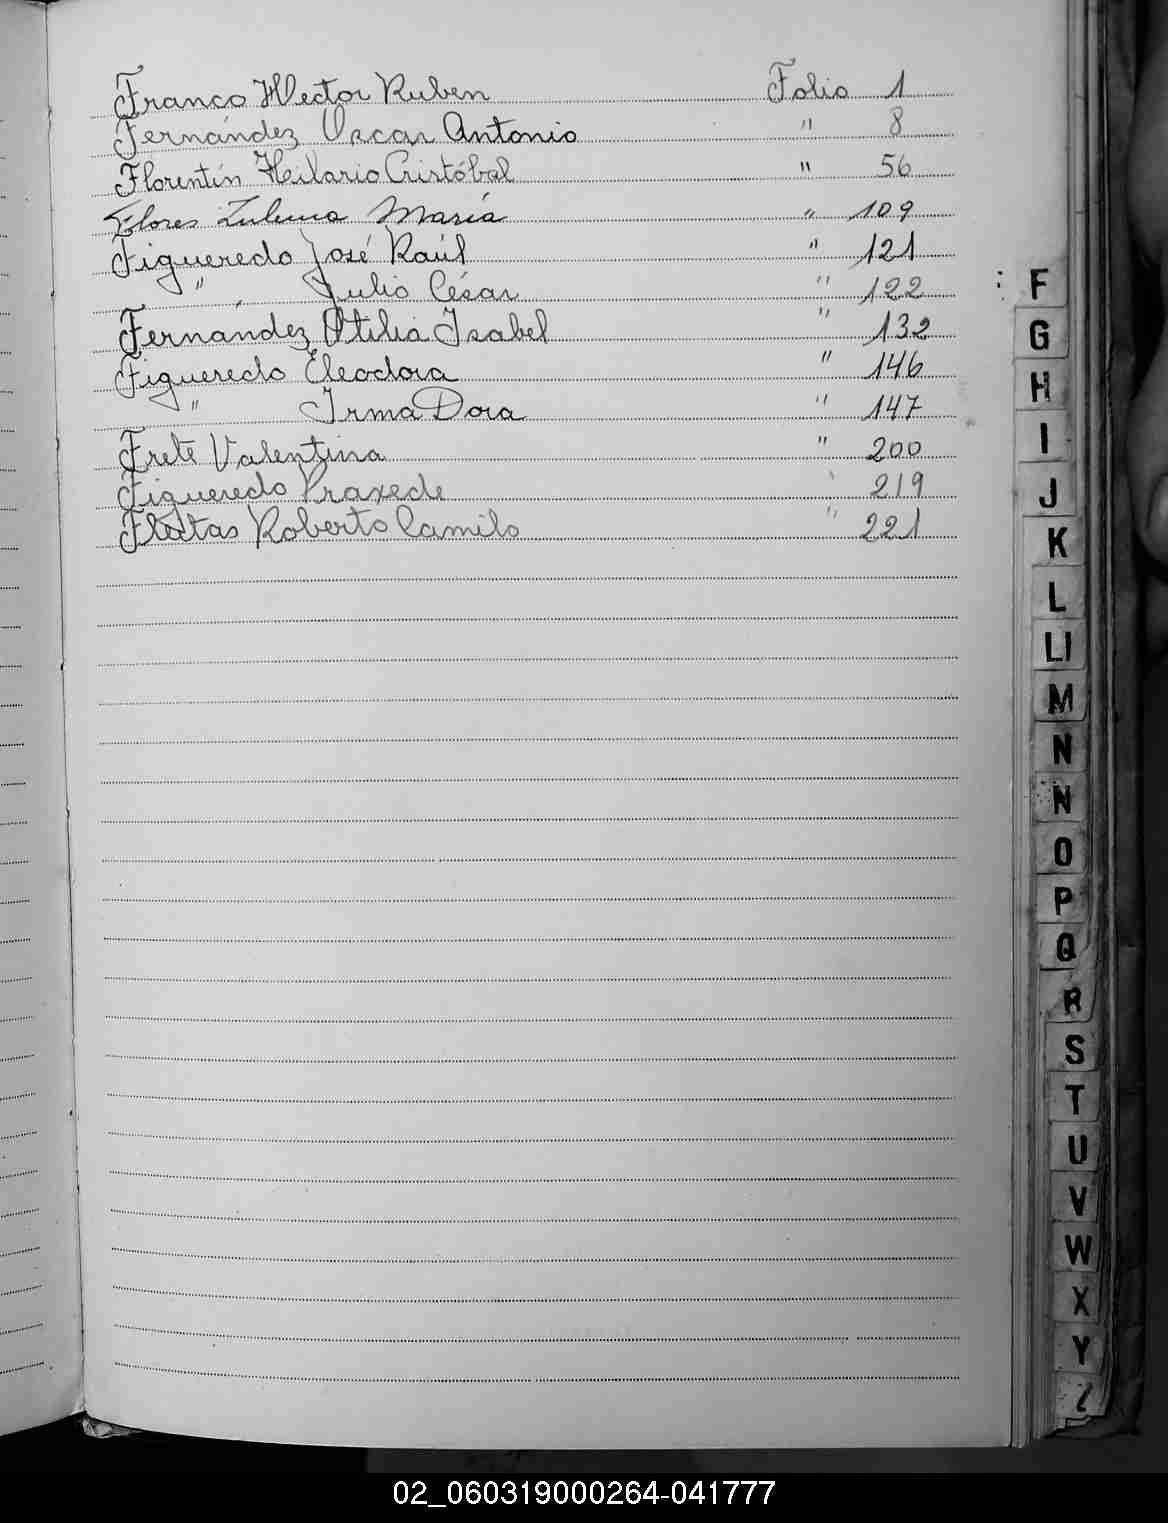 Franco Hector Ruben Folio 1
Fernández Oscar Antonio " 8
Florentín Hilario Cristóbal " 56
Flores Zulema María " 109
Figueredo José Raúl " 121
" Julio César " 122
Fernández Otilia Isabel " 132
Figueredo Eleodora " 146
" Irma Dora " 147
Frete Valentina " 200
Figueredo Praxede 219
Fleitas Roberto Camilo " 221
F
G
H
I
J
K
L
Ll
M
N
Ñ
O
P
Q
R
S
T
U
V
W
X
Y
Z
02_060319000264-041777